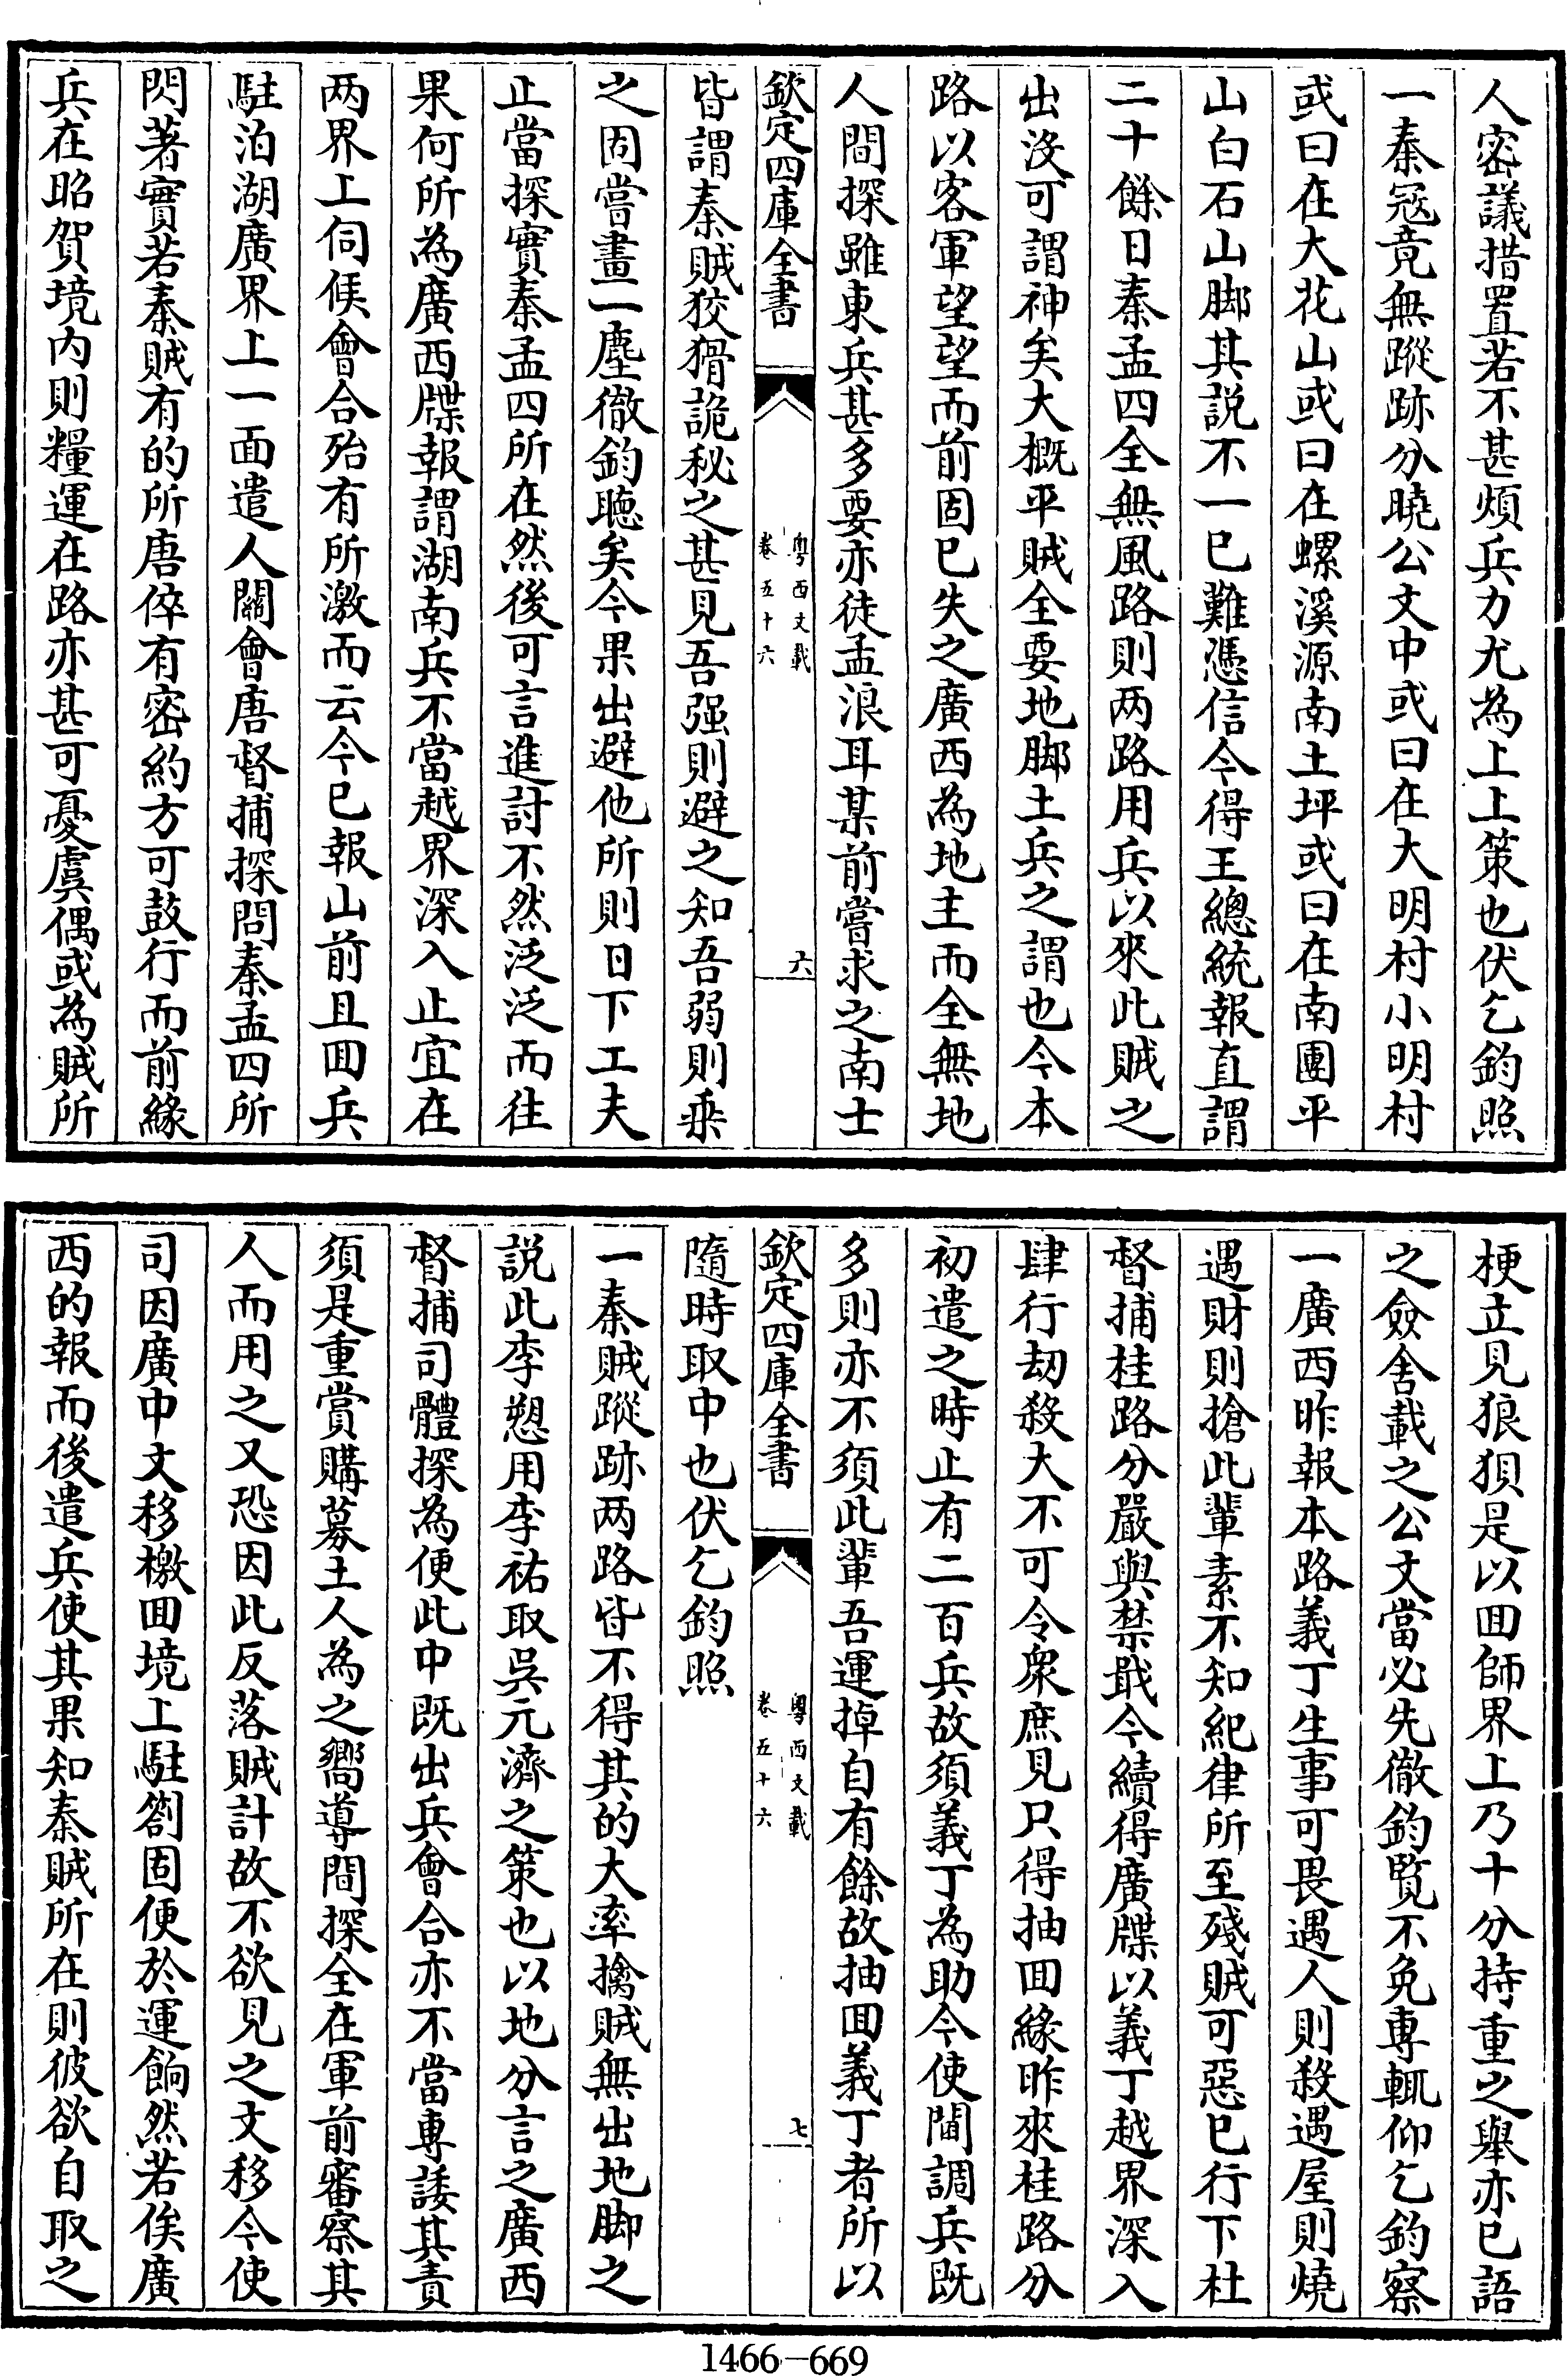 人密議措置若不甚煩兵力尤為上上策也伏乞鈞照
一秦宼竟無蹤跡分曉公文中或曰在大明村小明村
或曰在大花山或曰在螺溪源南土坪或曰在南團平
山白石山脚其説不一已難憑信今得王總統報直謂
二十餘日秦孟四全無風路則两路用兵以來此賊之
出没可謂神矣大概平賊全要地脚土兵之謂也今本
路以客軍望望而前固已失之廣西為地主而全無地
人間探雖東兵甚多要亦徒孟浪耳某前嘗求之南士
欽定四庫全書
粤西文載
卷五十六
六
皆謂秦賊狡猾詭秘之甚見吾强則避之知吾弱則乗
之固嘗畫一塵徹鈞聴矣今果出避他所則日下工夫
止當探實秦孟四所在然後可言進討不然泛泛而往
果何所為廣西牒報謂湖南兵不當越界深入止宜在
两界上伺候會合殆有所激而云今已報山前且囬兵
駐泊湖廣界上一面遣人關會唐督捕探問秦孟四所
閃著實若秦賊有的所唐倅有密約方可鼓行而前緣
兵在昭賀境内則糧運在路亦甚可憂虞偶或為賊所
梗立見狼狽是以囬師界上乃十分持重之舉亦已語
之僉舍載之公文當必先徹鈞覽不免專輒仰乞鈞察
一廣西昨報本路義丁生事可畏遇人則殺遇屋則燒
遇財則搶此輩素不知紀律所至殘賊可惡已行下杜
督捕桂路分嚴與禁戢今續得廣牒以義丁越界深入
肆行刼殺大不可令衆庶見只得抽囬緣昨來桂路分
初遣之時止有二百兵故須義丁為助今使閫調兵既
多則亦不須此輩吾運掉自有餘故抽囬義丁者所以
欽定四庫全書
粤西文載
卷五十六
七
隨時取中也伏乞鈞照
一秦賊蹤跡两路皆不得其的大率擒賊無出地脚之
説此李愬用李祐取吳元濟之策也以地分言之廣西
督捕司體探為便此中既出兵會合亦不當專諉其責
須是重賞購募土人為之嚮導間探全在軍前審察其
人而用之又恐因此反落賊計故不欲見之文移今使
司因廣中文移檄囬境上駐劄固便於運餉然若俟廣
西的報而後遣兵使其果知秦賊所在則彼欲自取之
1466—669